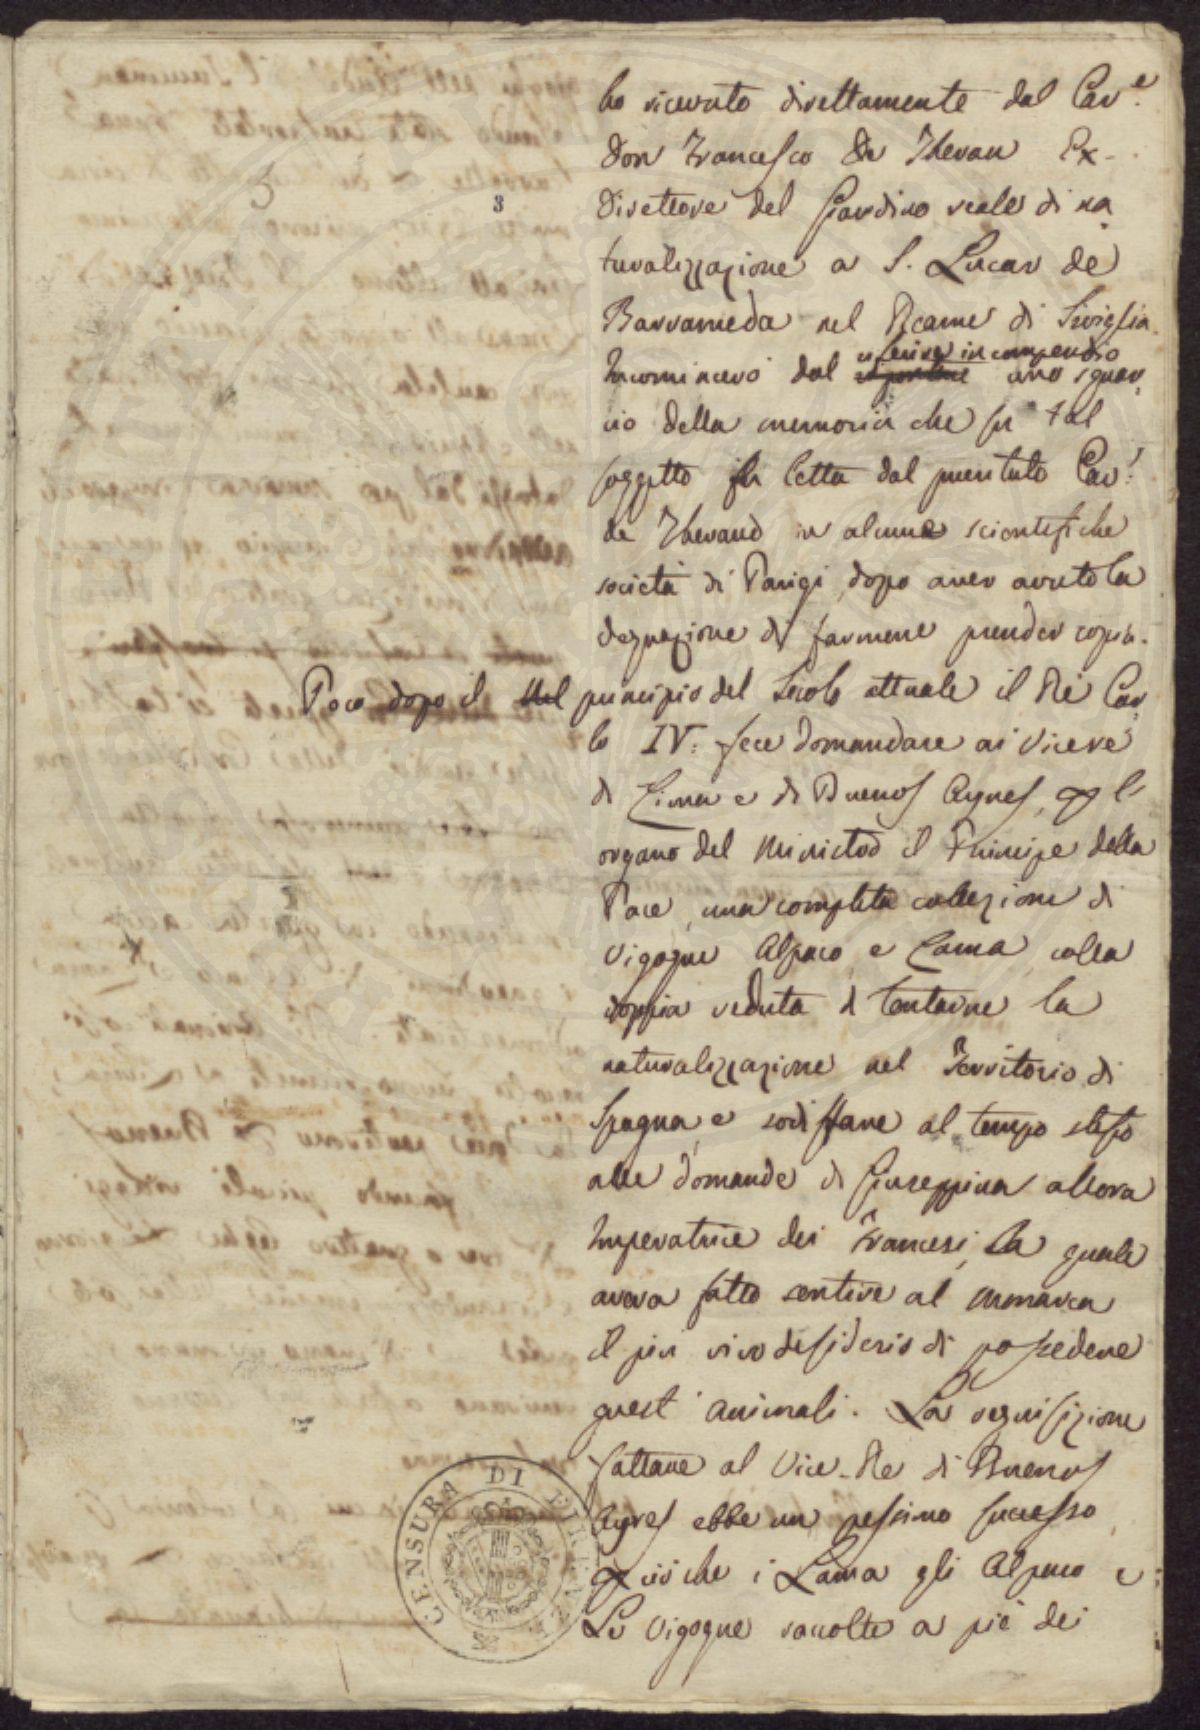 3
ho ricevuto direttamente dal Cav.e
Don Francesco De Theran Ex-
Direttore del Giardino reale di na
turalizzazione a S. Lucar de
Barrameda nel Reame di Siviglia.
in compendio
Incomincerò dal uno squar,
cio della memoria che su tal
soggetto fu letta dal prelodato Cav.
de Therand in alcune scientifiche
società di Parigi, dopo aver avuto la
degnazione di farmene prender copia.
Poco dopo il Nel principio del Secolo attuale il Re Car,
lo IV: fece domandare ai Vicerè
di Lima e di Buenos Ayres, per l'
organo del Ministro il Principe della
Pace, una completa collezione di
Vigogne Alpaco, e Lama, colla
doppia veduta di tentarne la
naturalizzazione nel Territorio di
Spagna, e sodisfare al tempo stesso
alle domande di Giuseppina allora
Imperatrice dei Francesi, la quale
aveva fatto sentire al monarca
il più vivo desiderio di possedere
questi animali. La requisizione
fattane al Vice-Re di Buenos
Ayres ebbe un pessimo successo,
perciochè i Lama gli Alpaco e
Le Vigogne raccolte a piè dei
CENSURA DI FIRENZE